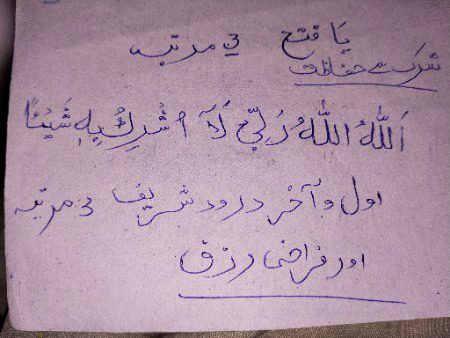 یا فتح 3 مرتبہ
شرک سے حفاظت
اَللّٰهُ اللّٰهُ رَبِّیْ لَآ اُشْرِكُ بِهٖ شَیْئًا
اول و آخر درود شریف 3 مرتبہ
اور فراخی رزق